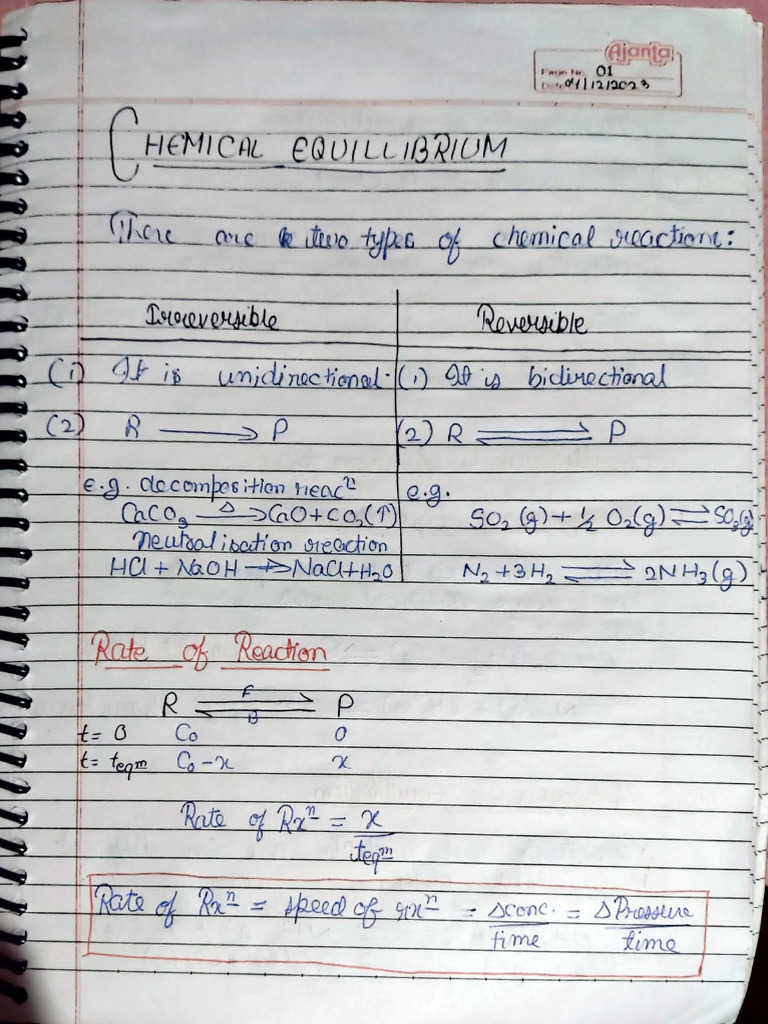 Ajanta
Page No. 01
Date 04/12/2023
CHEMICAL EQUILLIBRIUM
There are two types of chemical reactions:
Irreversible
Reversible
(1) It is unidirectional.
(1) It is bidirectional
(2) R ⟶ P
(2) R ⇌ P
e.g. decomposition reacⁿ
e.g.
CaCO₃ —Δ→ CaO + CO₂(↑)
SO₂ (g) + ½ O₂(g) ⇌ SO₃(g)
neutralisation reaction
HCl + NaOH → NaCl + H₂O
N₂ + 3H₂ ⇌ 2NH₃(g)
Rate of Reaction
R ⇌ P
F
B
t = 0 C₀ 0
t = teqm C₀ - x x
Rate of Rxⁿ = x / teqm
Rate of Rxⁿ = speed of rxⁿ = Δconc. / time = ΔPressure / time